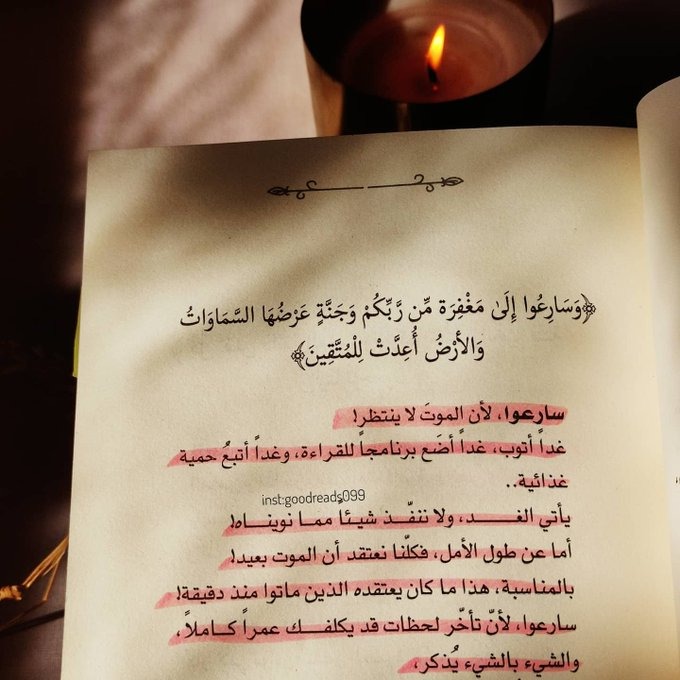 ﴿وَسَارِعُوا إِلَىٰ مَغْفِرَة مِّن رَّبِّكُمْ وَجَنَّةٍ عَرْضُهَا السَّمَاوَاتُ
وَالأرْضُ أُعِدَّتْ لِلْمُتَّقِينَ﴾
سارعوا، لأن الموتَ لا ينتظر!
غداً أتوب، غداً أضَع برنامجاً للقراءة، وغداً أتبعُ حمية
غذائية..
inst:goodreads099
يأتي الغــــد، ولا ننفّــذ شيـئاً ممـا نوينـاه!
أما عن طول الأمل، فكلّنا نعتقد أن الموت بعيد!
بالمناسبة، هذا ما كان يعتقده الذين ماتوا منذ دقيقة!
سارعوا، لأنّ تأخّر لحظات قد يكلفــك عمراً كـاملاً،
والشيء بالشيء يُذكر،